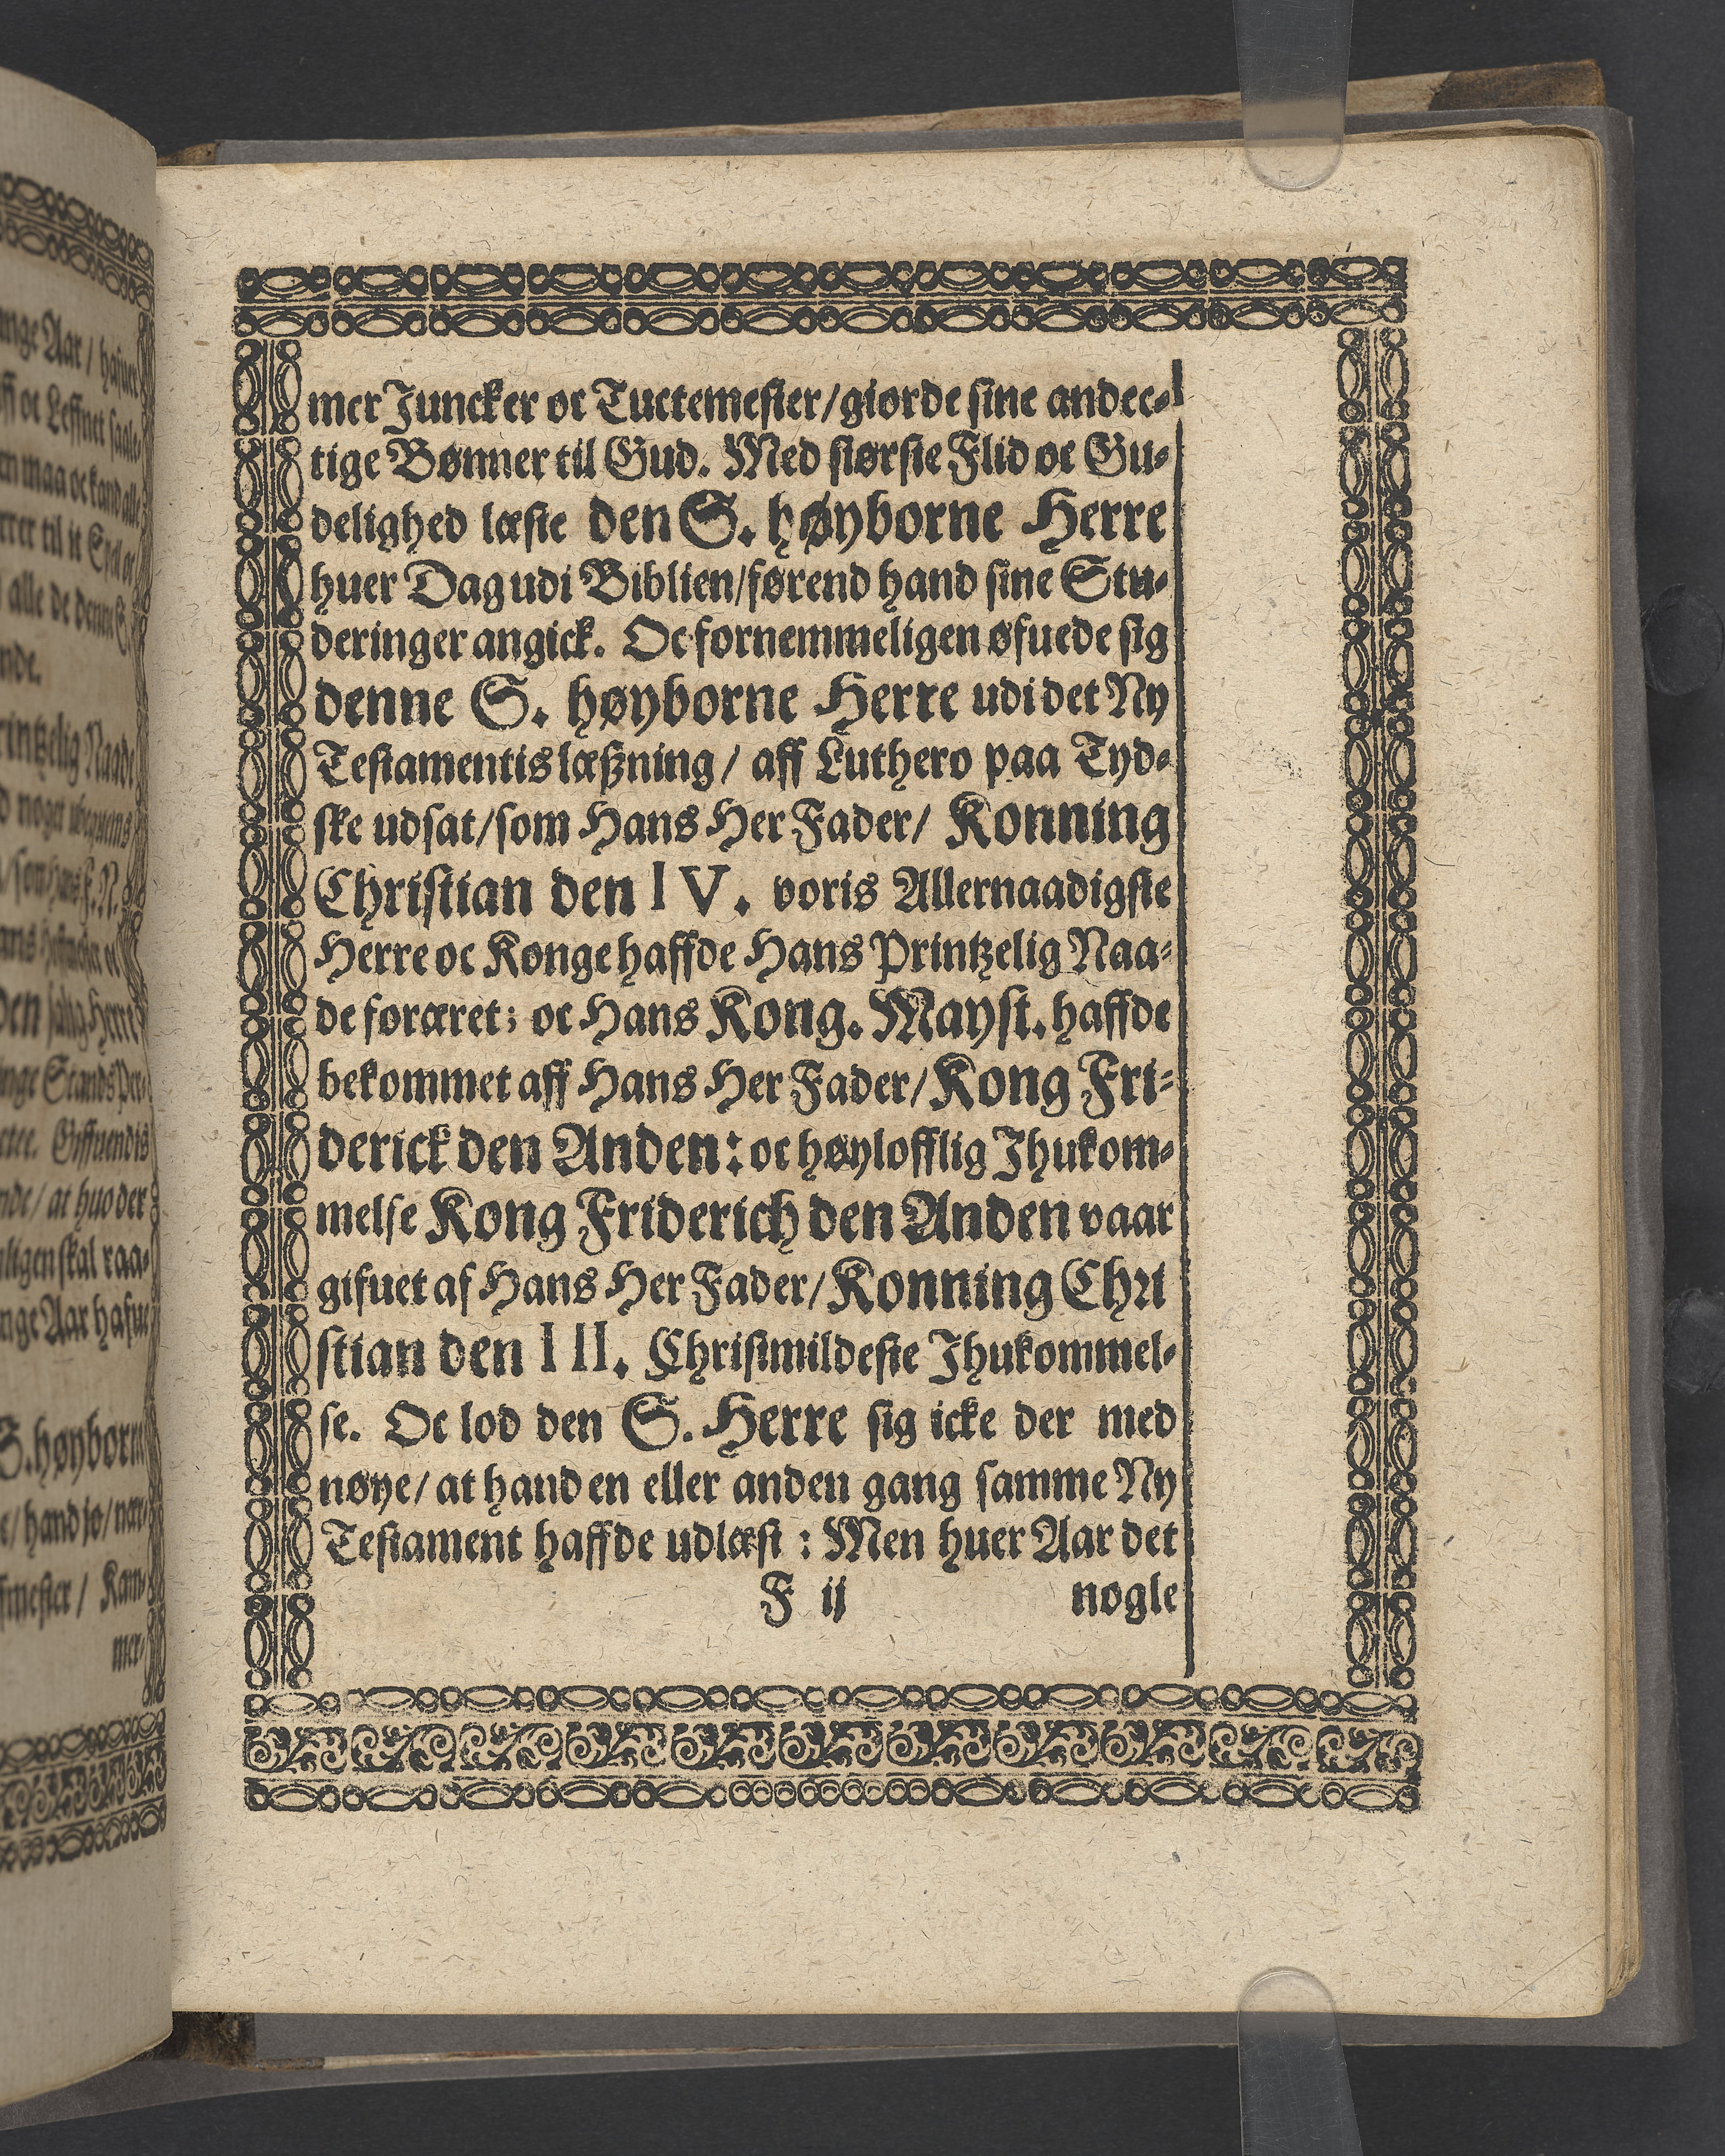 mer Juncker oc Tuctemester/giorde sine andec-
tige Bønner til Gud. Med største Flid oc Gu-
delighed læste den S. høyborne Herre
huer Dag udi Biblien/førend hand sine Stu-
deringer angick. Oc fornemmeligen øfuede sig
denne S. høyborne Herre udi det Ny
Testamentis læßning/ aff Luthero paa Tyd-
ske udsat/som Hans Her Fader/ Konning
Christian den IV. voris Allernaadigste
Herre oc Konge haffde Hans Printzelig Naa-
de foræret; oc Hans Kong. Mayst. haffde
bekommet aff Hans Her Fader/Kong Fri-
derick den Anden: oc høylofflig Ihukom-
melse Kong Friderich den Anden vaar
gifuet af Hans Her Fader/Konning Chri
stian den III. Christmildeste Ihukommel-
se. Oc lod den S. Herre sig icke der med
nøye/ at hand en eller anden gang samme Ny
Testament haffde udlæst: Men huer Aar det
F ij nogle